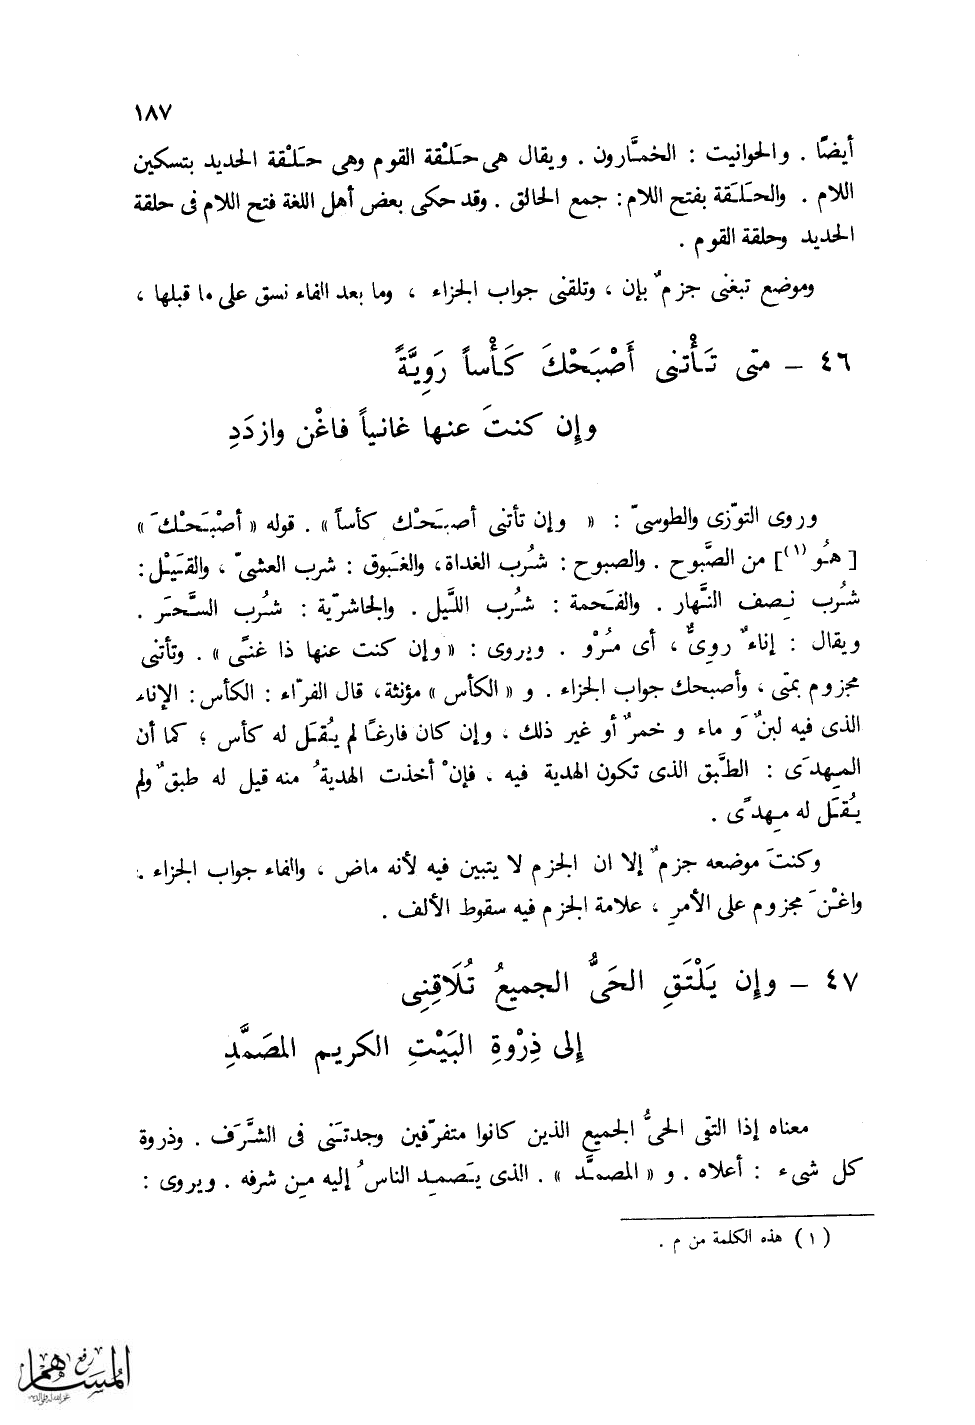 ١٨٧
أيضًا . والحوانيت : الخمَّارون . ويقال هى حَلْقة القوم وهى حَلْقة الحديد بتسكين
اللام . والحَلَقة بفتح اللام : جمع الحالق . وقد حكى بعض أهل اللغة فتح اللام فى حلقة
الحديد وحلقة القوم .
وموضع تبغنى جزمٌ بإن ، وتلقنى جواب الجزاء ، وما بعد الفاء نسق على ما قبلها ،
٤٦ – متى تَأْتنى أَصْبَحْكَ كَأْساً رَوِيَّةً
وإن كنتَ عنها غانياً فاغْن وازدَدِ
وروى التوّزى والطوسىّ : « وإن تأتنى أصبَحْك كأساً » . قوله « أصْبَحْكَ »
[ هُو (١) ] من الصَّبوح . والصبوح : شُرب الغداة ، والغَبوق : شرب العشىّ ، والقَيْل :
شُرب نِصف النَّهار . والفَحمة : شُرب اللَّيل . والجاشريّة : شُرب السَّحَر .
ويقال : إناءٌ روِىٌّ ، أى مُرْوٍ . ويروى : « وإن كنت عنها ذا غنًى » . وتأتنى
مجزوم بمتى ، وأصبحك جواب الجزاء . و « الكأس » مؤنثة ، قال الفرّاء : الكأس : الإناء
الذى فيه لبنٌ و ماء و خمرٌ أو غير ذلك ، وإن كان فارغًا لم يُقَل له كأس ؛ كما أن
المِهدَى : الطَّبق الذى تكون الهدية فيه ، فإنْ أخذت الهديةُ منه قيل له طبقٌ ولم
يُقَل له مِهدًى .
وكنتَ موضعه جزمٌ إلا ان الجزم لا يتبين فيه لأنه ماض ، والفاء جواب الجزاء .
واغْنَ مجزوم على الأمرِ ، علامة الجزم فيه سقوط الألف .
٤٧ – وإن يَلْتَقِ الحَىُّ الجميعُ تُلَاقِنِى
إلى ذِرْوةِ البَيْتِ الكريم المصَمَّدِ
معناه إذا التقى الحىُّ الجميع الذين كانوا متفرّقين وجدتَنى فى الشَّرَف . وذروة
كل شىء : أعلاه . و « المصمَّد » . الذى يَصمِد الناسُ إليه مِن شرفه . ويروى :
( ١ ) هذه الكلمة من م .